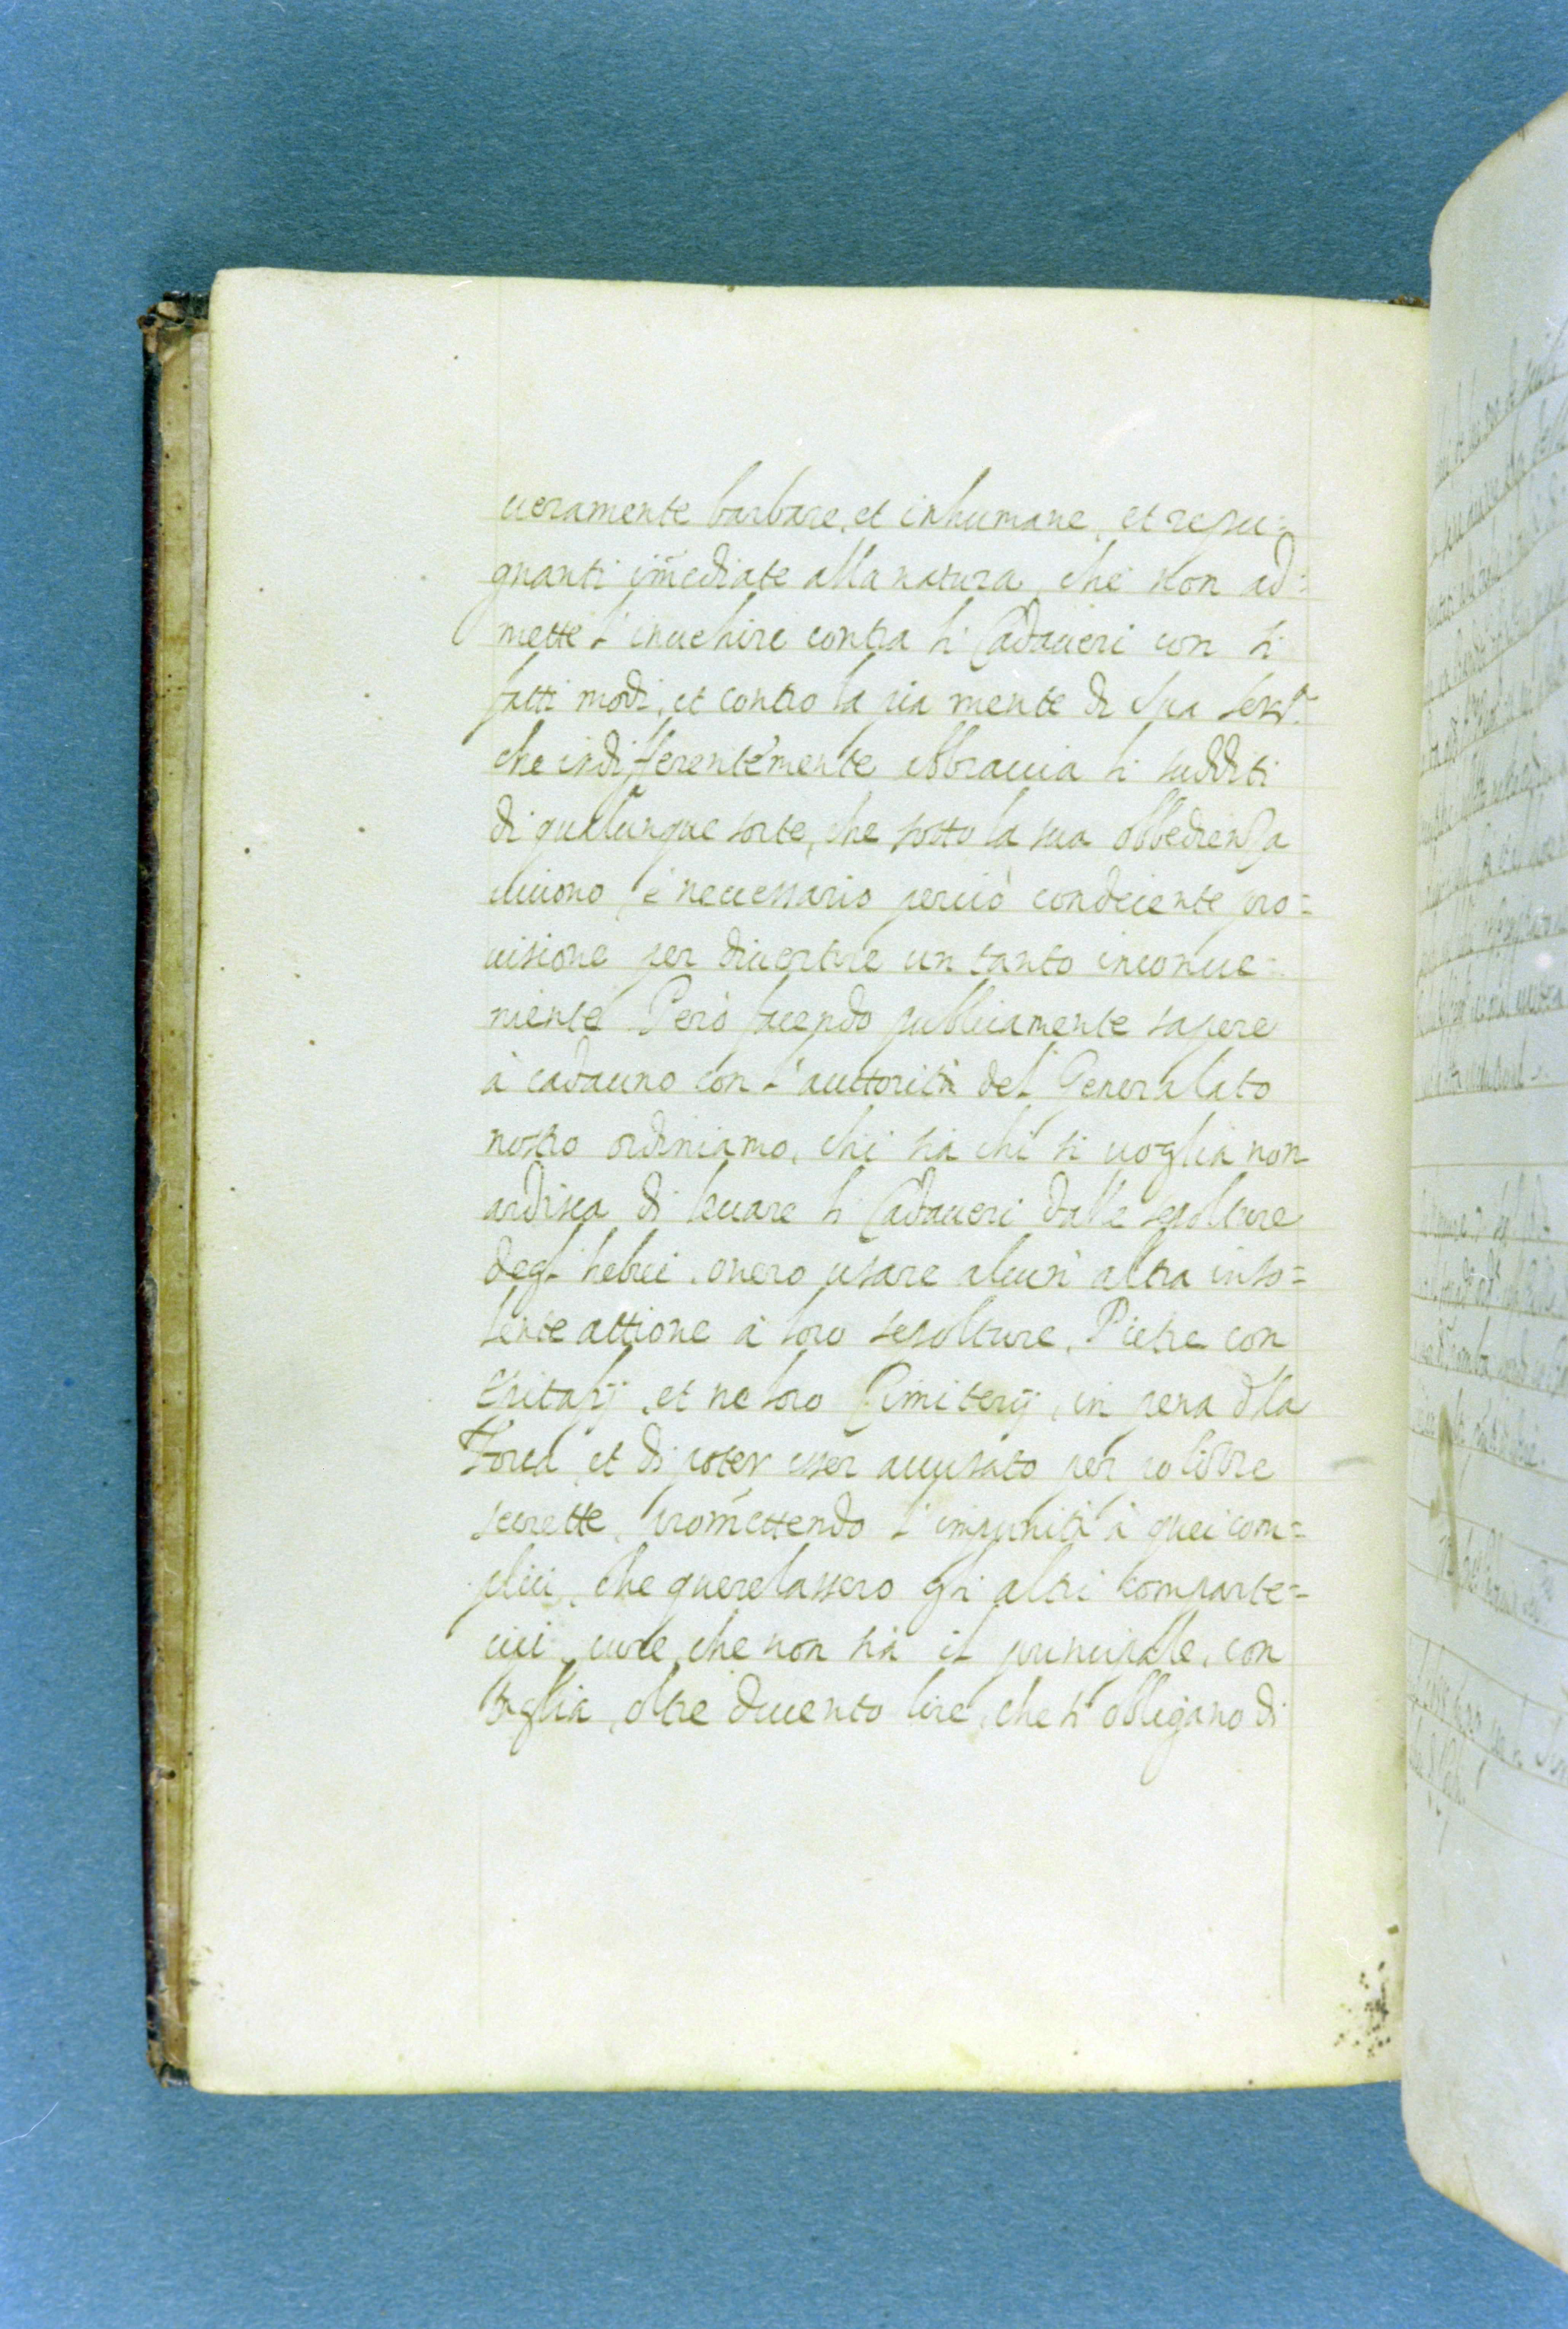 ueramente barbare, et inhumane, et repu=
gnanti im̃ediate alla natura, che non ad=
mette l'inuehire contra li Cadaueri con si
fatti modi, et contro la pia mente di Sua Ser.tà
che indifferentemente abbraccia li sudditi
di qualunque sorte, che sotto la sua obbedienza
uiuono è neccessario perciò condecente pro=
uisione per diuertire un tanto inconue=
niente Però facendo publicamente sapere
à cadauno con l'auttorità del Generalato
nostro ordiniamo, chi sia chi si uoglia non
ardisca di leuare li Cadaueri dalle sepolture
degl'hebrei, ouero usare alcun altra inso=
lente attione à loro sepolture, Pietre con
Epitafij, et ne loro Cimiterij, in pena dlla
Forca et di poter esser accusato per po
secrette, promettendo l'impunità à quei com=
plici, che querelassero gli altri comparte=
cipi, pure, che non sia il principalle, con
taglia, oltre ducento lire, che si obligano di